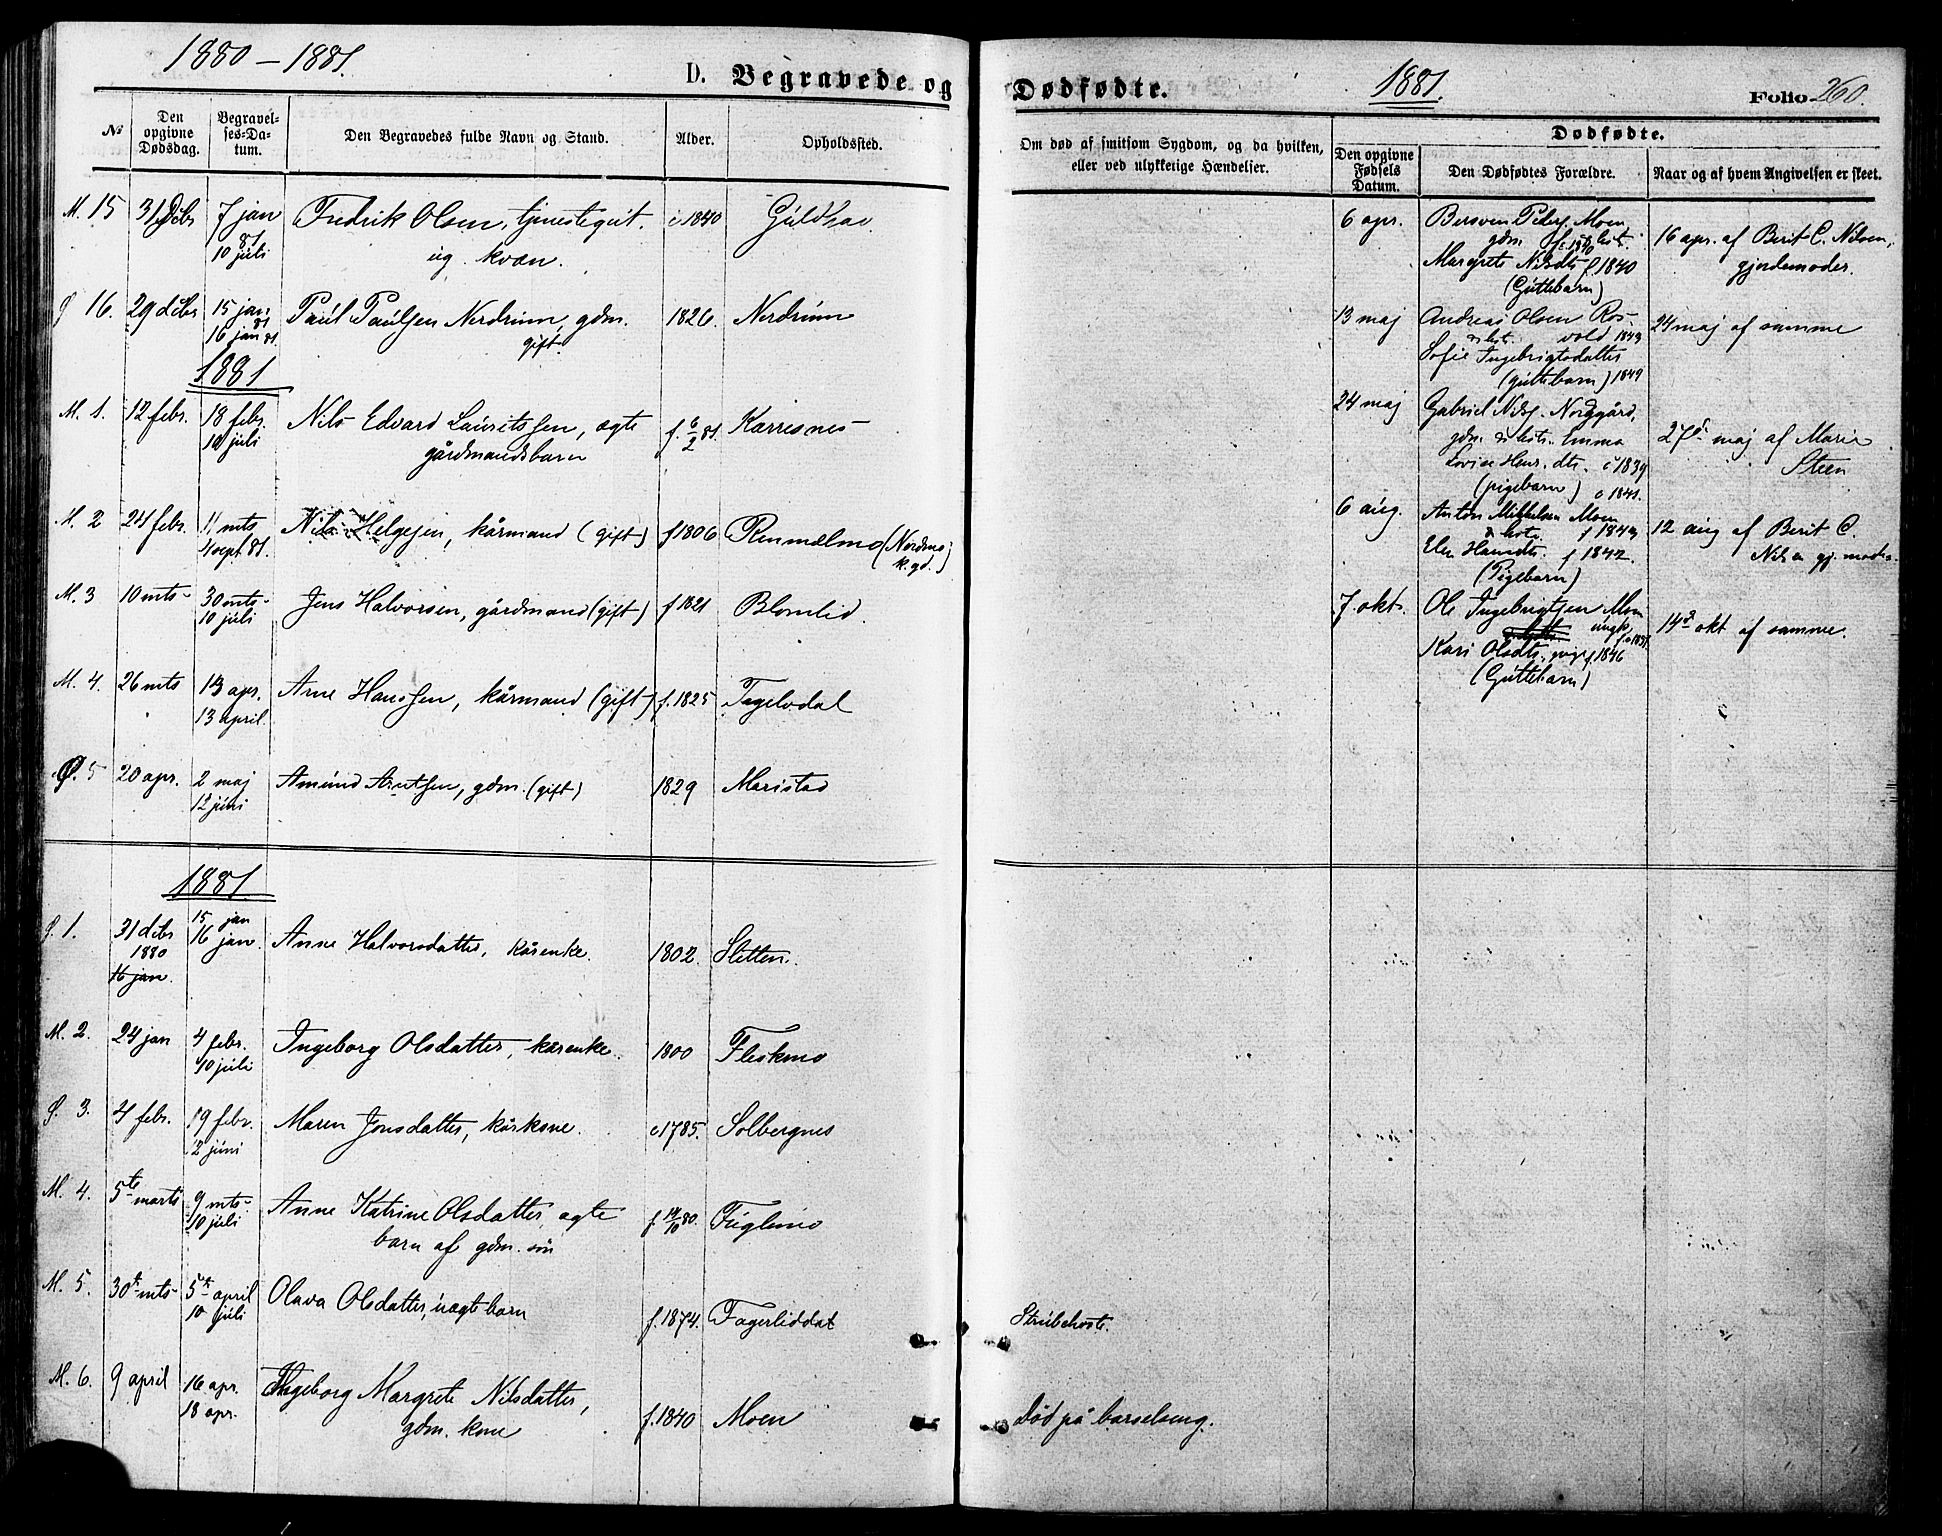 1880 – 1881.
D. Begravede og
№
Den opgivne Dødsdag.
Begravelses-Datum.
Den Begravedes fulde Navn og Stand.
Alder.
Opholdssted.
M. 15 31 Dcbr 7 jan Fredrik Olsen, tjenestegut. c 1840
81 10 juli ug. kvæn.
16. 29 dcbr 15 jan 81 Paul Paulsen Nerdrum, gdm. 1826. Nerdrum
16 jan 81. gift.
1881
M. 1. 12 febr. 18 febr. Nils Edvard Lauritssen, ægte f. 6/2 81. Karresnes
10 juli gårdmandsbarn
M. 2 24 febr. 11 mts Nils Helgesen, kårmand (gift) f 1806 Rennælmo (Nordmo
4 sept. 81. k. gd.)
M. 3 10 mts 30 mts Jens Halvorsen, gårdmand (gift) f 1821 Blomlid.
10 juli
M. 4. 26 mts 13 apr. Arne Hanssen, kårmand (gift) f. 1825
13 april.
Ø. 5 20 apr. 2 maj Amund Arntsen, gdm. (gift) 1829 Maristad
12 juni
1881.
1. 31 dcbr 15 jan Anne Halvorsdatter, kårenke. 1802. Sletten.
1880 16 jan.
16 jan.
M. 2. 24 jan 4 febr. Ingeborg Olsdatter, kårenke. 1800 Fleskmo
10 juli
3. 4 febr. 19 febr. Maren Jonsdatter, kårkone. c 1785. Solbergnes
12 juni
M. 4. 5te marts 9 mts Anne Katrine Olsdatter, ægte f. 14/10 80. Fuglimo
10 juli barn af gdm. søn
M. 5. 30te mts 5te april Olava Olsdatter, uægte barn f. 1874. Fagerliddal
10 juli
M. 6. 9 april 16 apr. Ingeborg Margrete Nilsdatter, f. 1840 Moen
18 apr. gdm. kone
Dødfødte.
1881.
Folio 260.
Om død af smitsom Sygdom, og da hvilken,
eller ved ulykkelige Hændelser.
Dødfødte.
Den opgivne Fødsels Datum.
Den Dødfødtes Forældre.
Naar og af hvem Angivelsen er skeet.
6 apr. Bersven Peders. Moen 16 apr. af Berit C. Nilsen,
gdm. gjordemoder.
Margrete Nilsdtr f 1840
(Guttebarn)
13 maj Andreas Olsen Ros- 24 maj af samme
& hstr. vold 1849
Sofie Ingebrigtsdatter
(guttebarn) 1849
24 maj Gabriel Nils. Nordgård,
gdm. & hstr. Emma 27de maj af Marie
Lovise Henr. dtr. c 1839 Steen
(pigebarn) c 1841.
6 aug. Anton Mikkelsen Moen 12 aug af Berit C.
& hstr. f 1843
Elen Hansdtr. f 1842
(Pigebarn)
7. okt. Ole Ingebrigtsen Moen 14de okt af samme.
ungk.
Kari Olsdtr. pige f. 1846
(Guttebarn)
Strubehoste.
Død på barselseng.